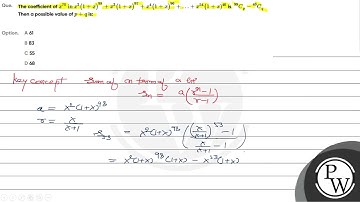 Que. The coefficient of x⁷⁰ in x²(1+x)⁹⁸ + x³(1+x)⁹⁷ + x⁴(1+x)⁹⁶ + ... + x⁵⁴(1+x)⁴⁶ is ⁹⁹Cₚ − ⁴⁶C_q.
Then a possible value of p + q is:
Option. A 61
B 83
C 55
D 68
Key concept Sum of n term of a GP
Sn = a(rⁿ−1 / r−1)
a = x²(1+x)⁹⁸
r = x/x+1
S₅₃ = x²(1+x)⁹⁸ ((x/x+1)⁵³ − 1) / (x/x+1 − 1)
= x²(1+x)⁹⁸(1+x) −
PW